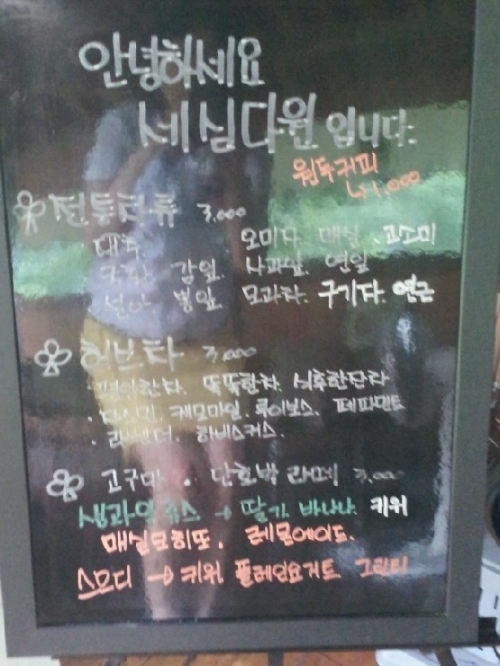 안녕하세요
세심다원 입니다.
원두커피
↳1,000
전통차류 3,000
대추. 오미자 매실
감잎. 사과잎. 연잎
뽕잎. 모과차. 구기자. 연근
허브차 3,000
편안한차. 똑똑한차.
케모마일. 루이보스. 페파민트
하비스커스.
고구마 · 단호박 라떼 3,000
생과일쥬스 → 딸기. 바나나. 키위
매실모히또. 레몬에이드.
스무디 → 키위 플레인요거트 그린티